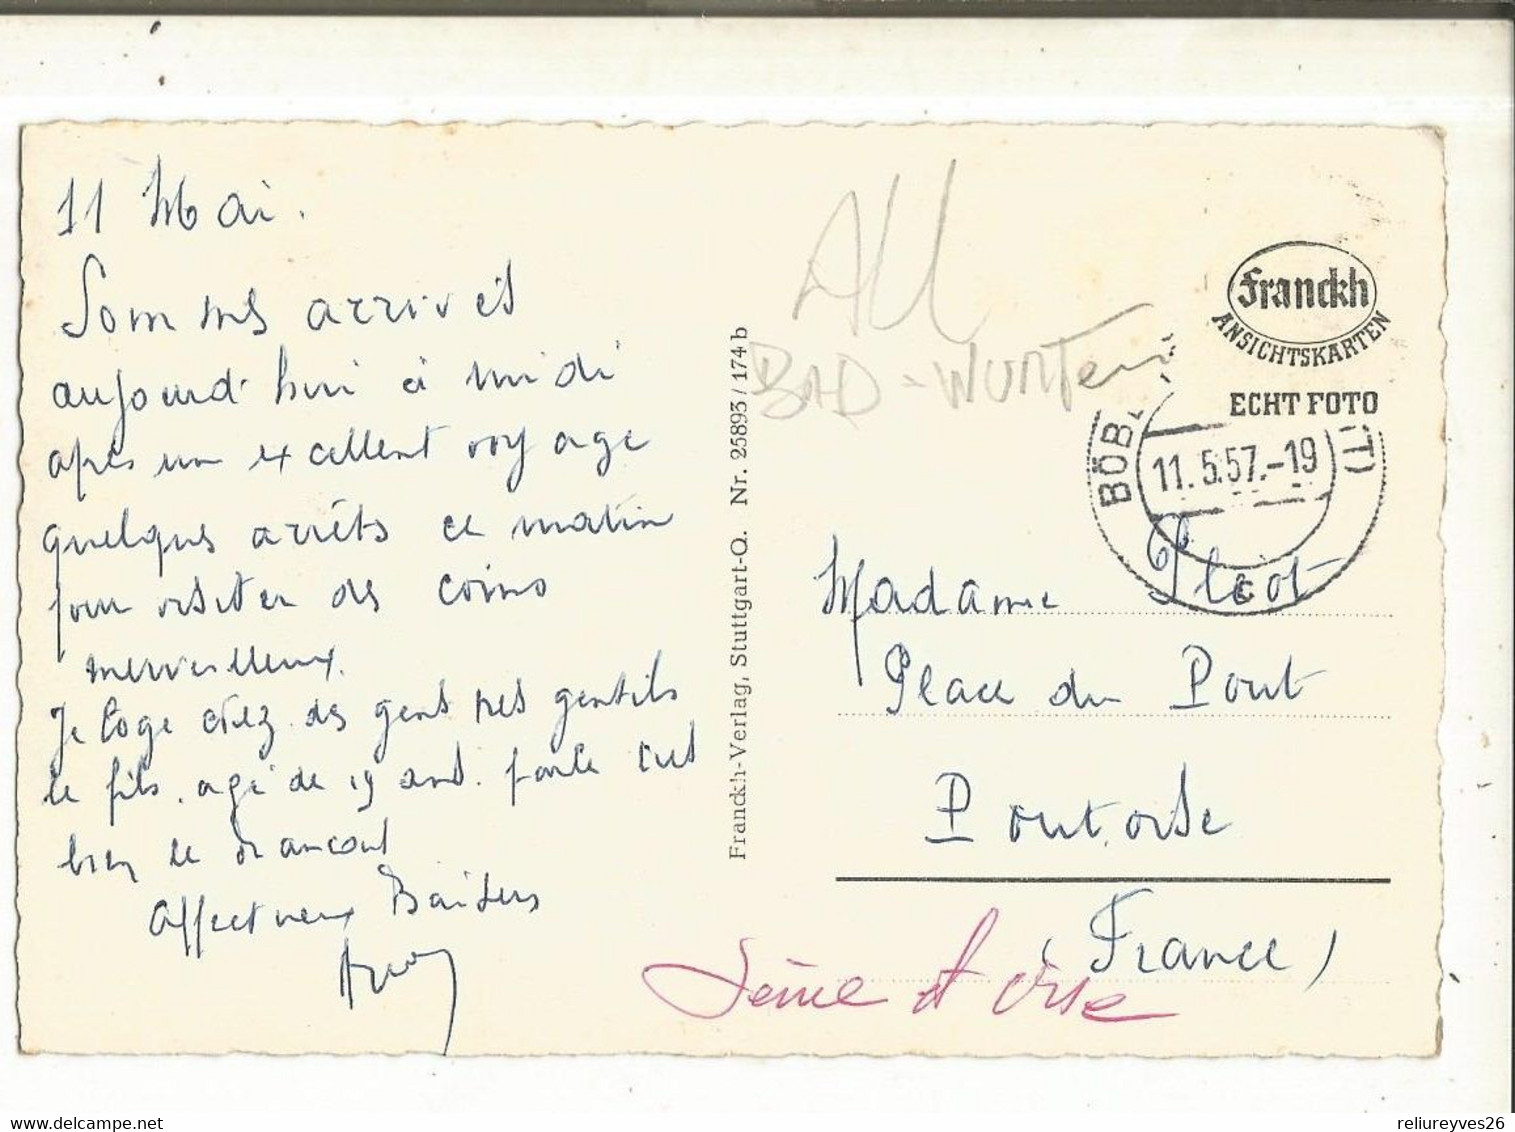 11 Mai.
Sommes arrivés
aujourd'hui à midi
après un excellent voyage
quelques arrêts ce matin
pour visiter des coins
merveilleux.
Je loge chez des gens très gentils
le fils. agé de 19 ans. parle très
bien le
Affectueux Baisers
Franckh-Verlag, Stuttgart-O. Nr. 25893 / 174 b
All
BAD-WURTem
Franckh
ANSICHTSKARTEN
ECHT FOTO
BÖB
11.5.57.-19
c
Madame
Place du Pont
Pontoise
(France)
Seine et Oise
Delcampe.net
reliureyves26